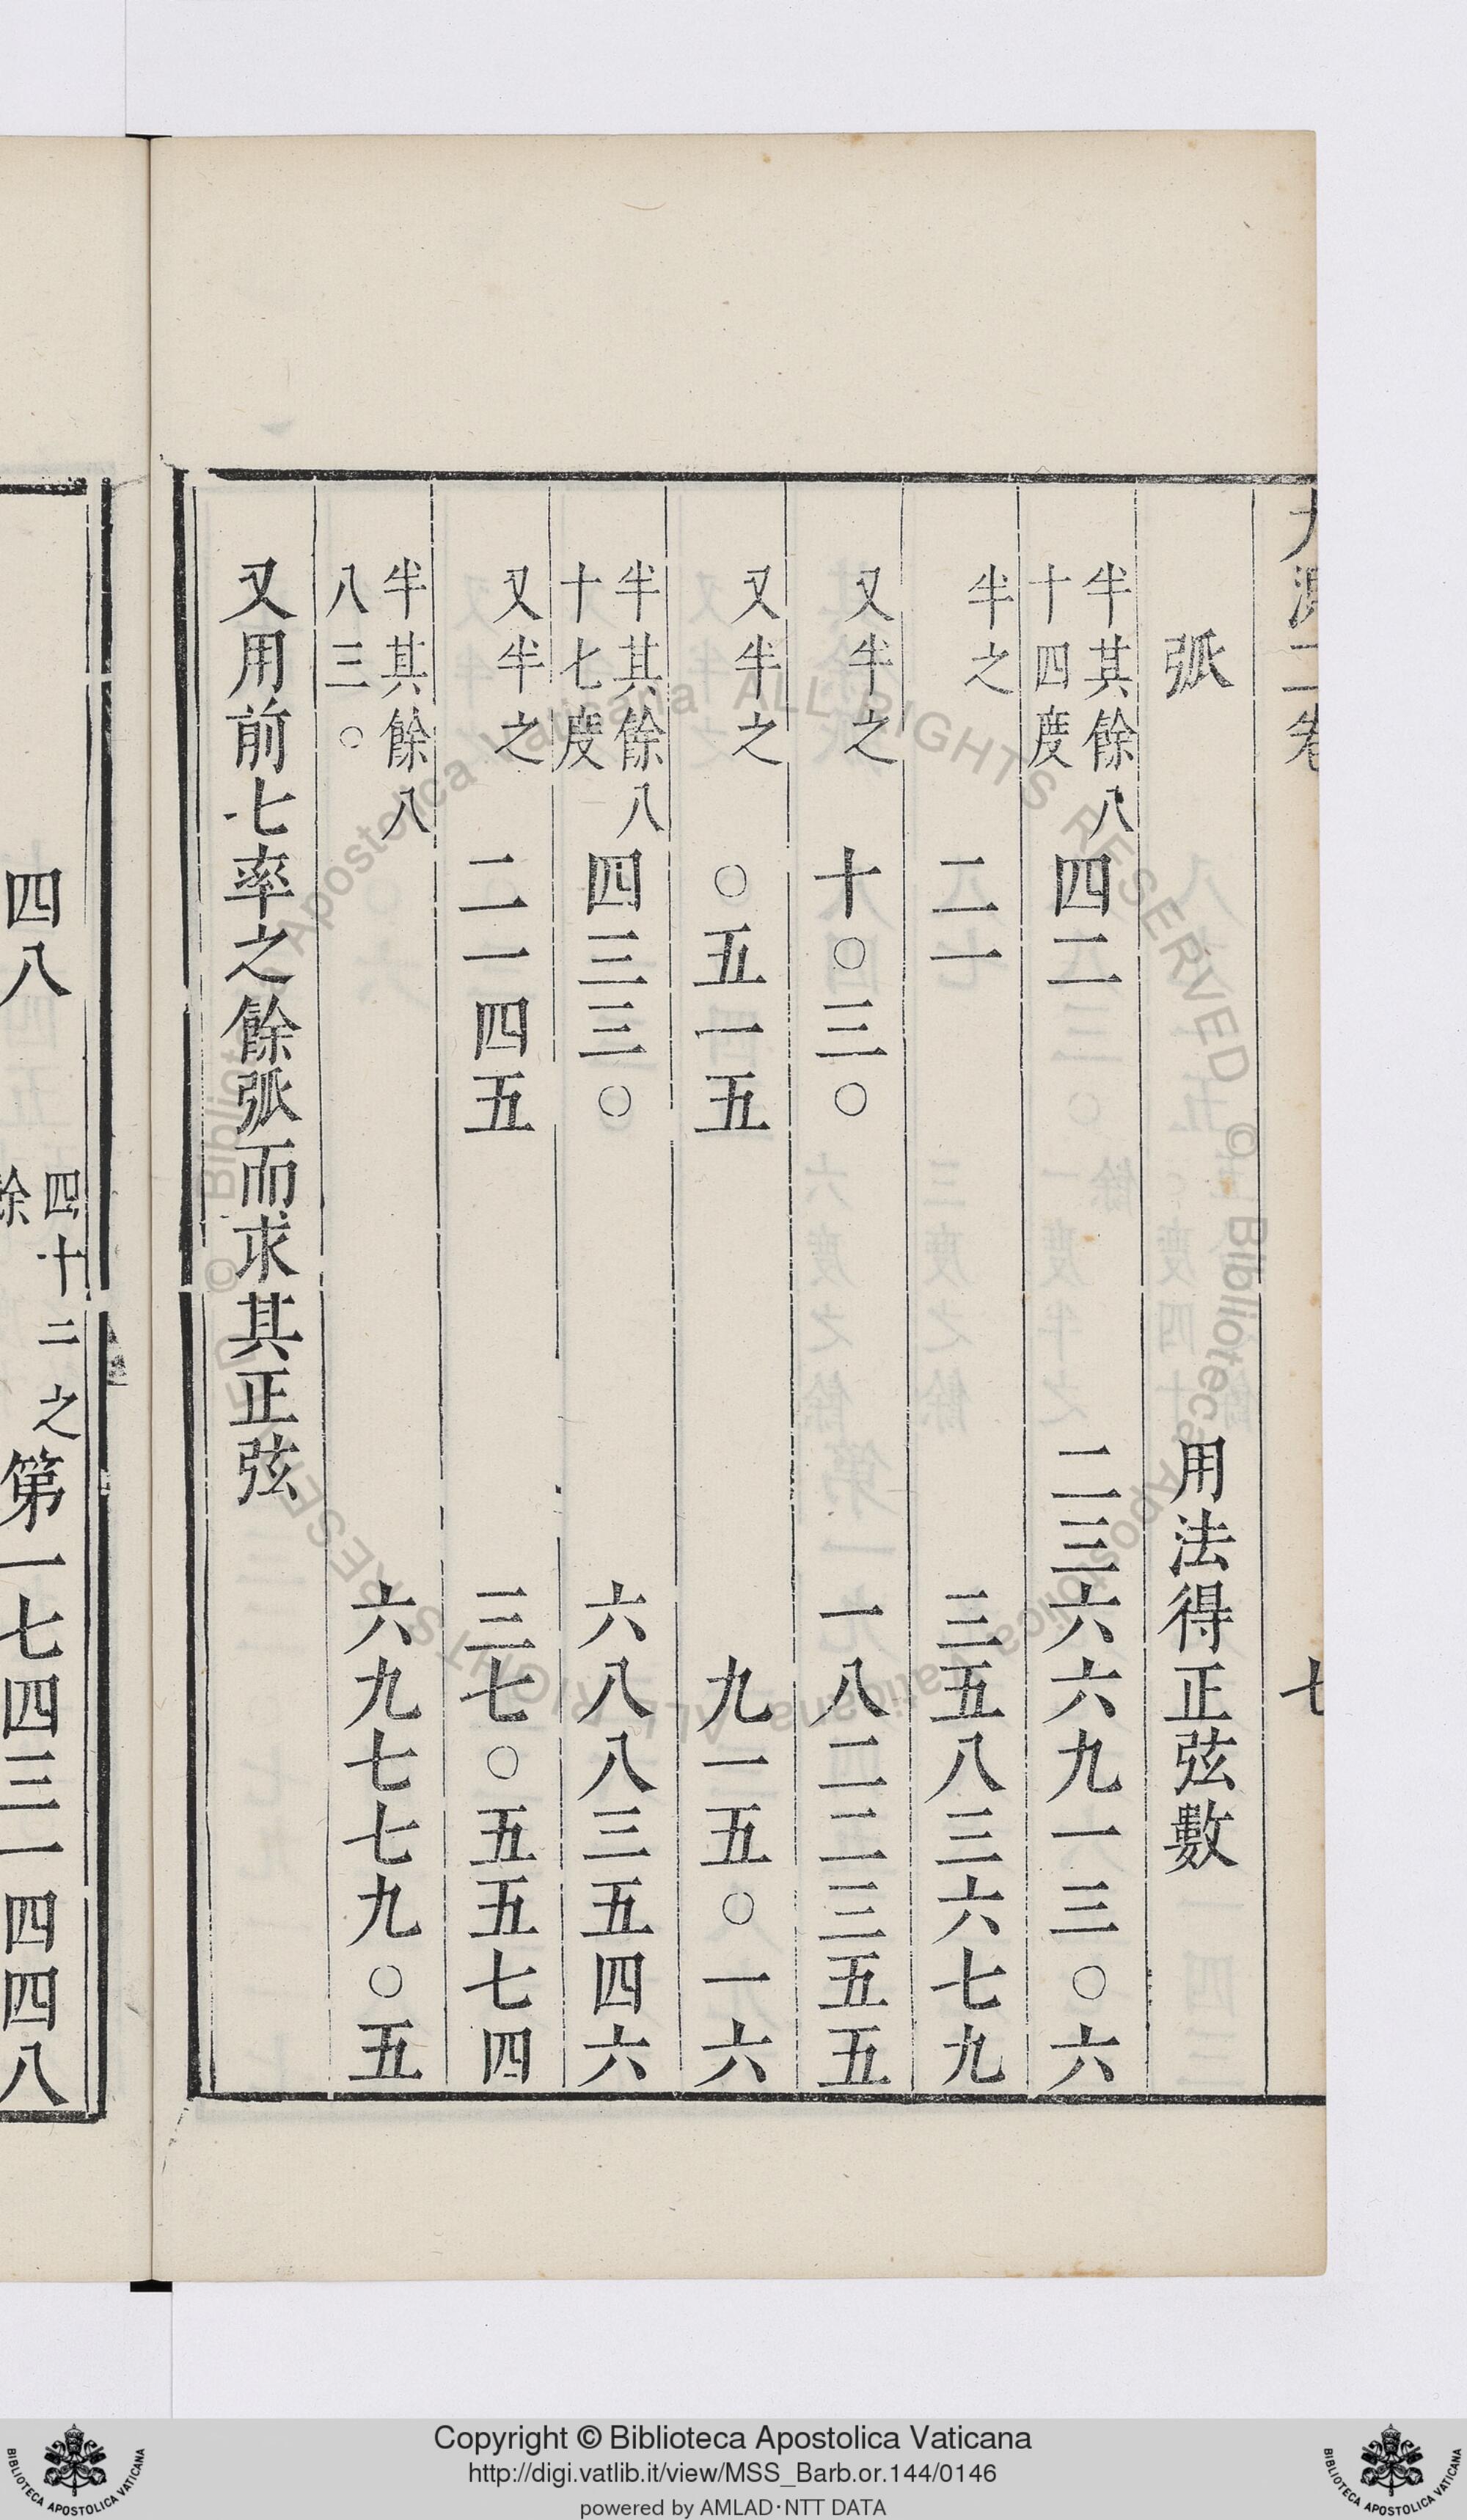 弧　用法得正弦數
半其餘八十四度　四二　二三六六九一三○六
半之　二一　三五八三六七九
又半之　十○三○　一八二二三五五
又半之　○五一五　九一五○一六
半其餘八十七度　四三三○　六八八三五四六
又半之　二一四五　三七○五五七四
半其餘八八三○　六九七七九○五
又用前七率之餘弧而求其正弦
七
四八　四十二之　餘　第一七四三一四四八
Copyright © Biblioteca Apostolica Vaticana
http://digi.vatlib.it/view/MSS_Barb.or.144/0146
powered by AMLAD·NTT DATA
BIBLIOTECA APOSTOLICA VATICANA
BIBLIOTECA APOSTOLICA VATICANA
© Biblioteca Apostolica Vaticana ALL RIGHTS RESERVED
© Biblioteca Apostolica Vaticana ALL RIGHTS RESERVED